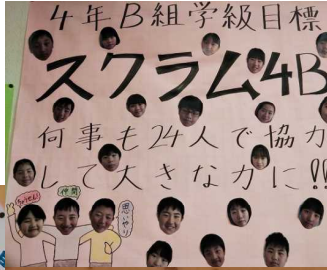 4年B組学級目標
スクラム4B
何事も24人で協力
して大きな力に!!
仲間
思いやり